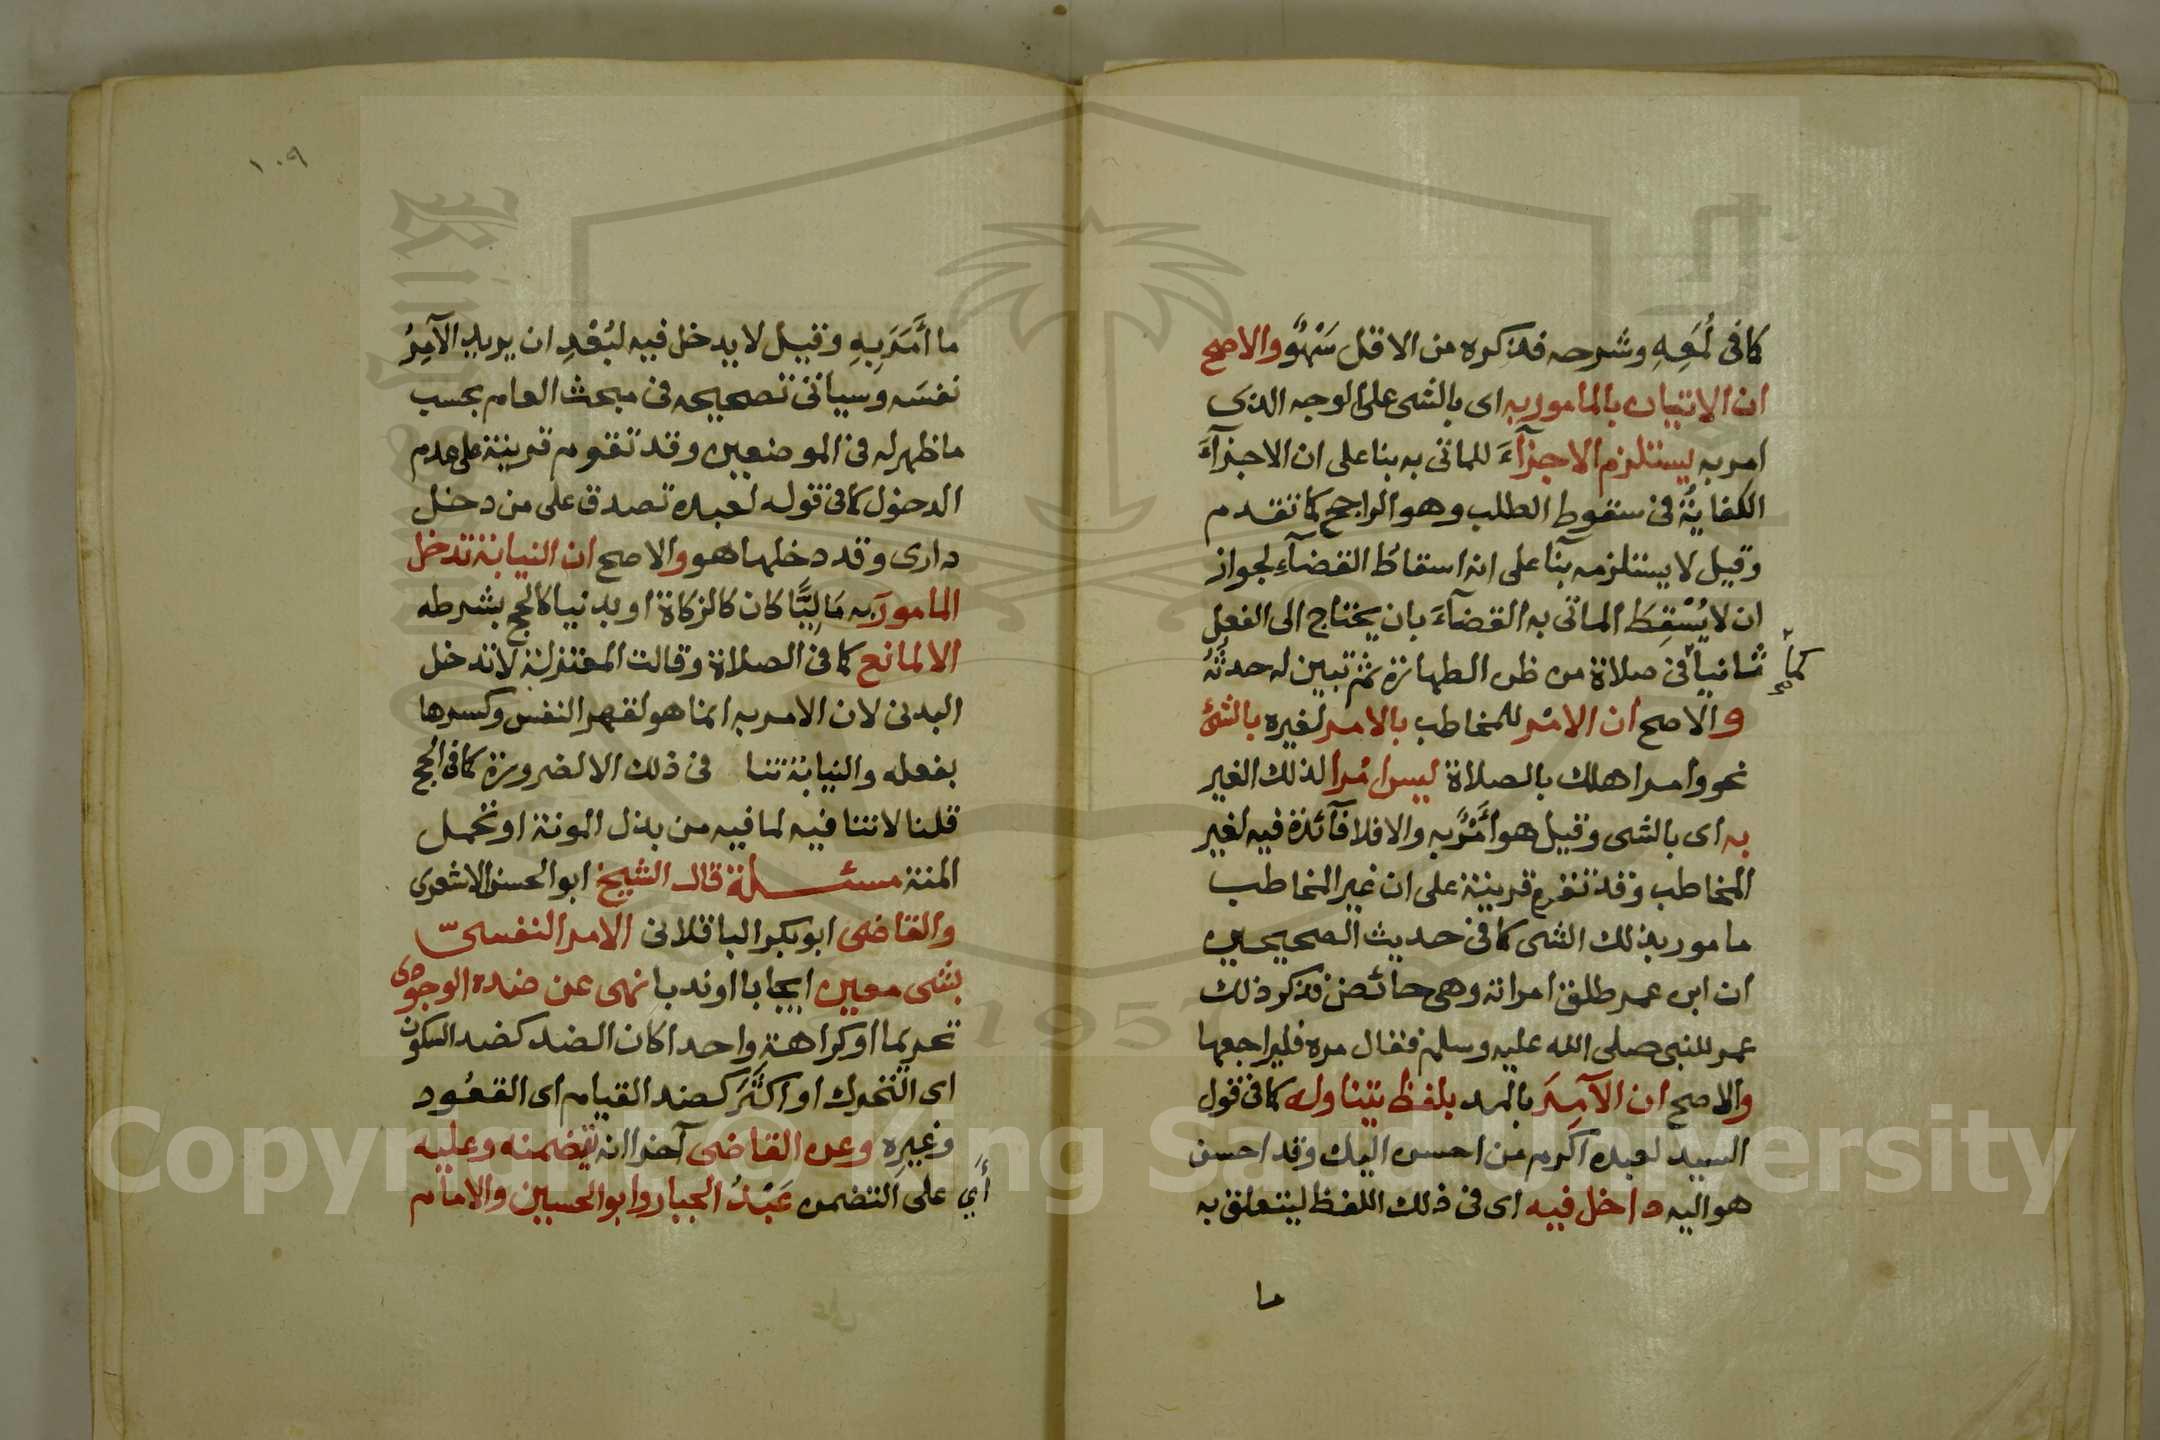 كما فى لُمَعِهِ وشرحه فذكره من الاقل سَهْوٌ والاصح
ان الاتيان بالمامور به اى بالشى على الوجه الذى
امر به يستلزم الاجزآءَ للماتى به بنا على ان الاجزآءَ
الكفاية فى سقوط الطلب وهو الراجح كما تقدم
وقيل لا يستلزمه بنآ على انه اسقاط القضآءِ لجواز
ان لا يُسْقِطَ الماتى به القضآءَ بان يحتاج الى الفعل
ثانيا فى صلاة من ظن الطهارة ثم تبين له حدثُهُ
كما
والاصح ان الامْر للمخاطب بالامر لغيره بالشئ
نحو وامر اهلك بالصلاة ليس امْرا لذلك الغير
به اى بالشى وقيل هو أَمْرٌ به والا فلا فآئدة فيه لغير
المخاطب وقد تقوم قرينة على ان غير المخاطب
مامور بذلك الشى كما فى حديث الصحيحين
ان ابن عمر طلق امراته وهى حائض فذكر ذلك
عمر للنبى صلى الله عليه وسلم فقال مره فليراجعها
والاصح ان الآمِرَ بالمد بلفظ يتناوله كما فى قول
السيد لعبده اكرم من احسن اليك وقد احسن
هو اليه داخل فيه اى فى ذلك اللفظ ليتعلق به
ما
١٠٩
ما أَمَرَ بِهِ وقيل لا يدخل فيه لبُعْدِ ان يريد الآمِرُ
نفسَه وسياتى تصحيحه فى مبحث العام بحسب
ما ظهر له فى الموضعين وقد تقوم قرينة على عدم
الدخول كما فى قوله لعبده تصدق على من دخل
دارى وقد دخلها هو والاصح ان النيابة تدخل
المامورَ به مَالِيًّا كان كالزكاة او بدنيا كالحج بشرطه
الا لمانع كما فى الصلاة وقالت المعتزلة لا تدخل
البدنى لان الامر به انما هو لقهر النفس وكسرها
بفعله والنيابة تنا فى ذلك الا لضرورة كما فى الحج
قلنا لا تنافيه لما فيه من بذل المونة او تحمل
المنة مسئلة قال الشيخ ابو الحسن الاشعرى
والقاضى ابو بكر الباقلانى الامر النفسىّ
بشى معين ايجابا او ندبا نهى عن ضده الوجودى
تحريما او كراهة واحدا كان الضد كضد السكون
اى التحرك او اكْثَرَ كضد القيام اى القعُود
وغيرِه وعن القاضى آخرا انه يتضمنه وعليه
أَي على التضمن عَبْدُ الجبار وابو الحسين والامام
King Saud University
1957
Copyright © King Saud University